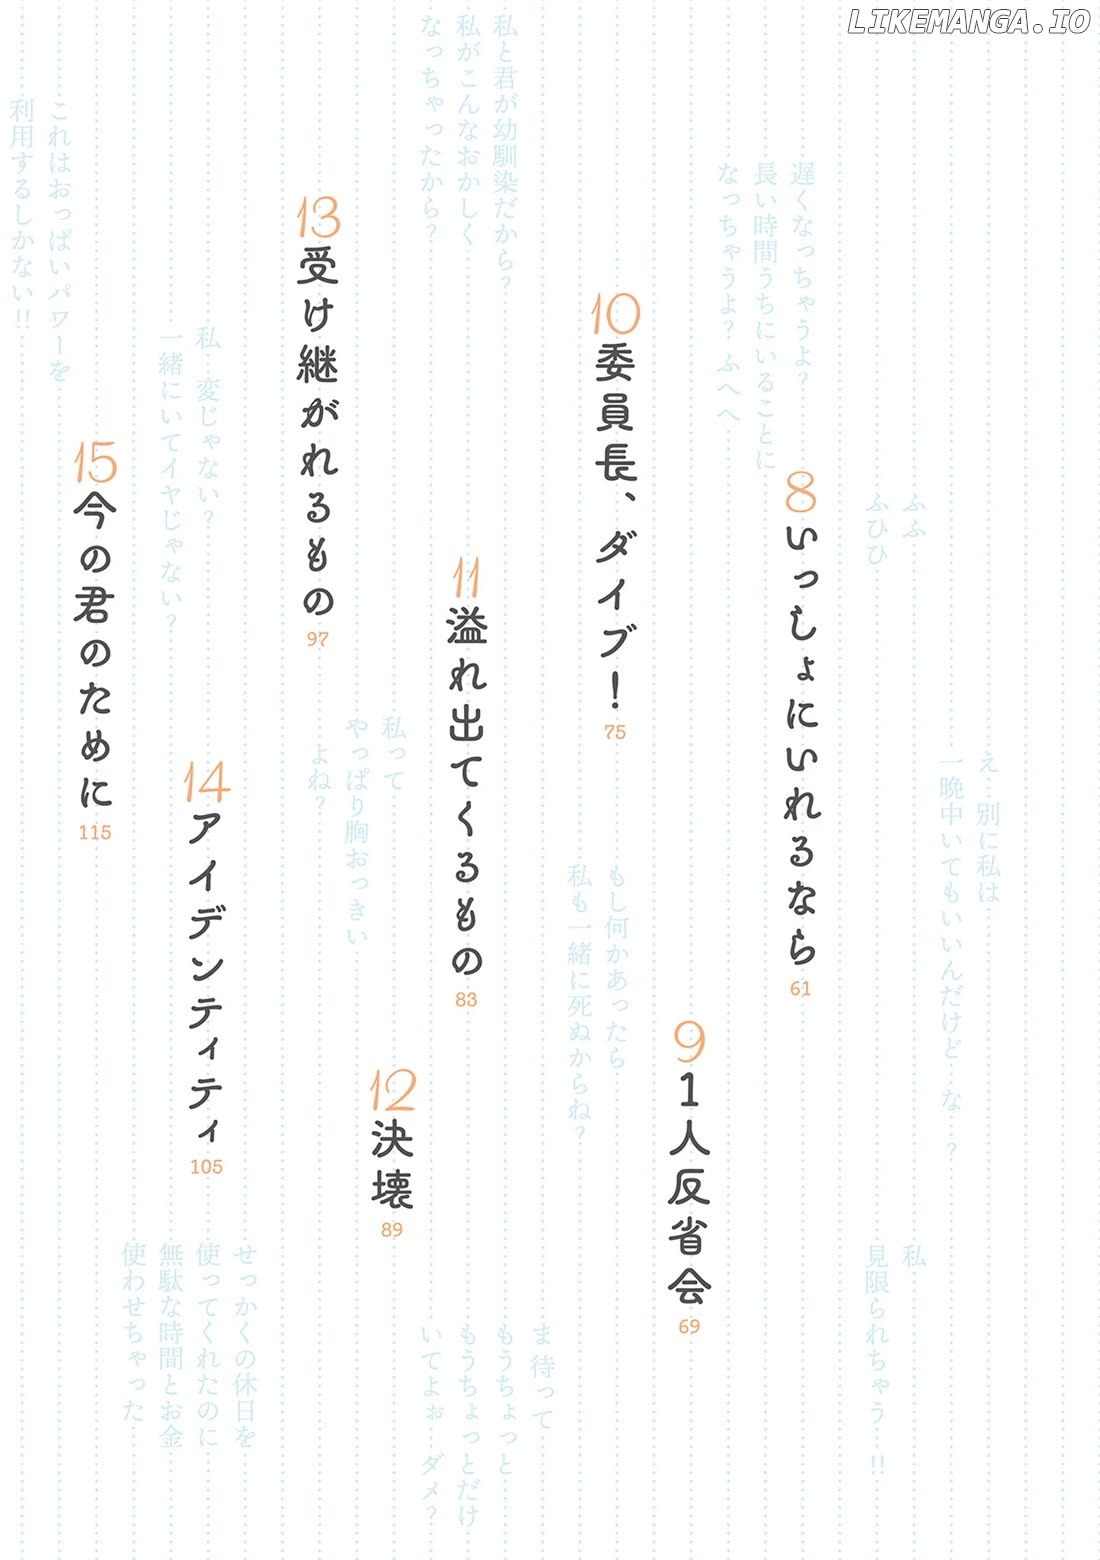 LIKEMANGA.IO
え 別に私は
一晩中いてもいいんだけど な ?
ふふ
ふひひ
私
見限られちゃう !!
遅くなっちゃうよ?
長い時間うちにいることに
なっちゃうよ? ふへへ
8 いっしょにいれるなら 61
9 1人反省会 69
10 委員長、ダイブ! 75
もし何かあったら
私も一緒に死ぬからね?
私と君が幼馴染だから?
私がこんなおかしく
なっちゃったから?
11 溢れ出てくるもの 83
ま 待って
もうちょっと
もうちょっとだけ
いてよぉ ダメ?
12 決壊 89
私って
やっぱり胸おっきい
よね?
13 受け継がれるもの 97
私 変じゃない?
一緒にいてイヤじゃない?
14 アイデンティティ 105
せっかくの休日を
使ってくれたのに
無駄な時間とお金
使わせちゃった
これはおっぱいパワーを
利用するしかない!!
15 今の君のために 115